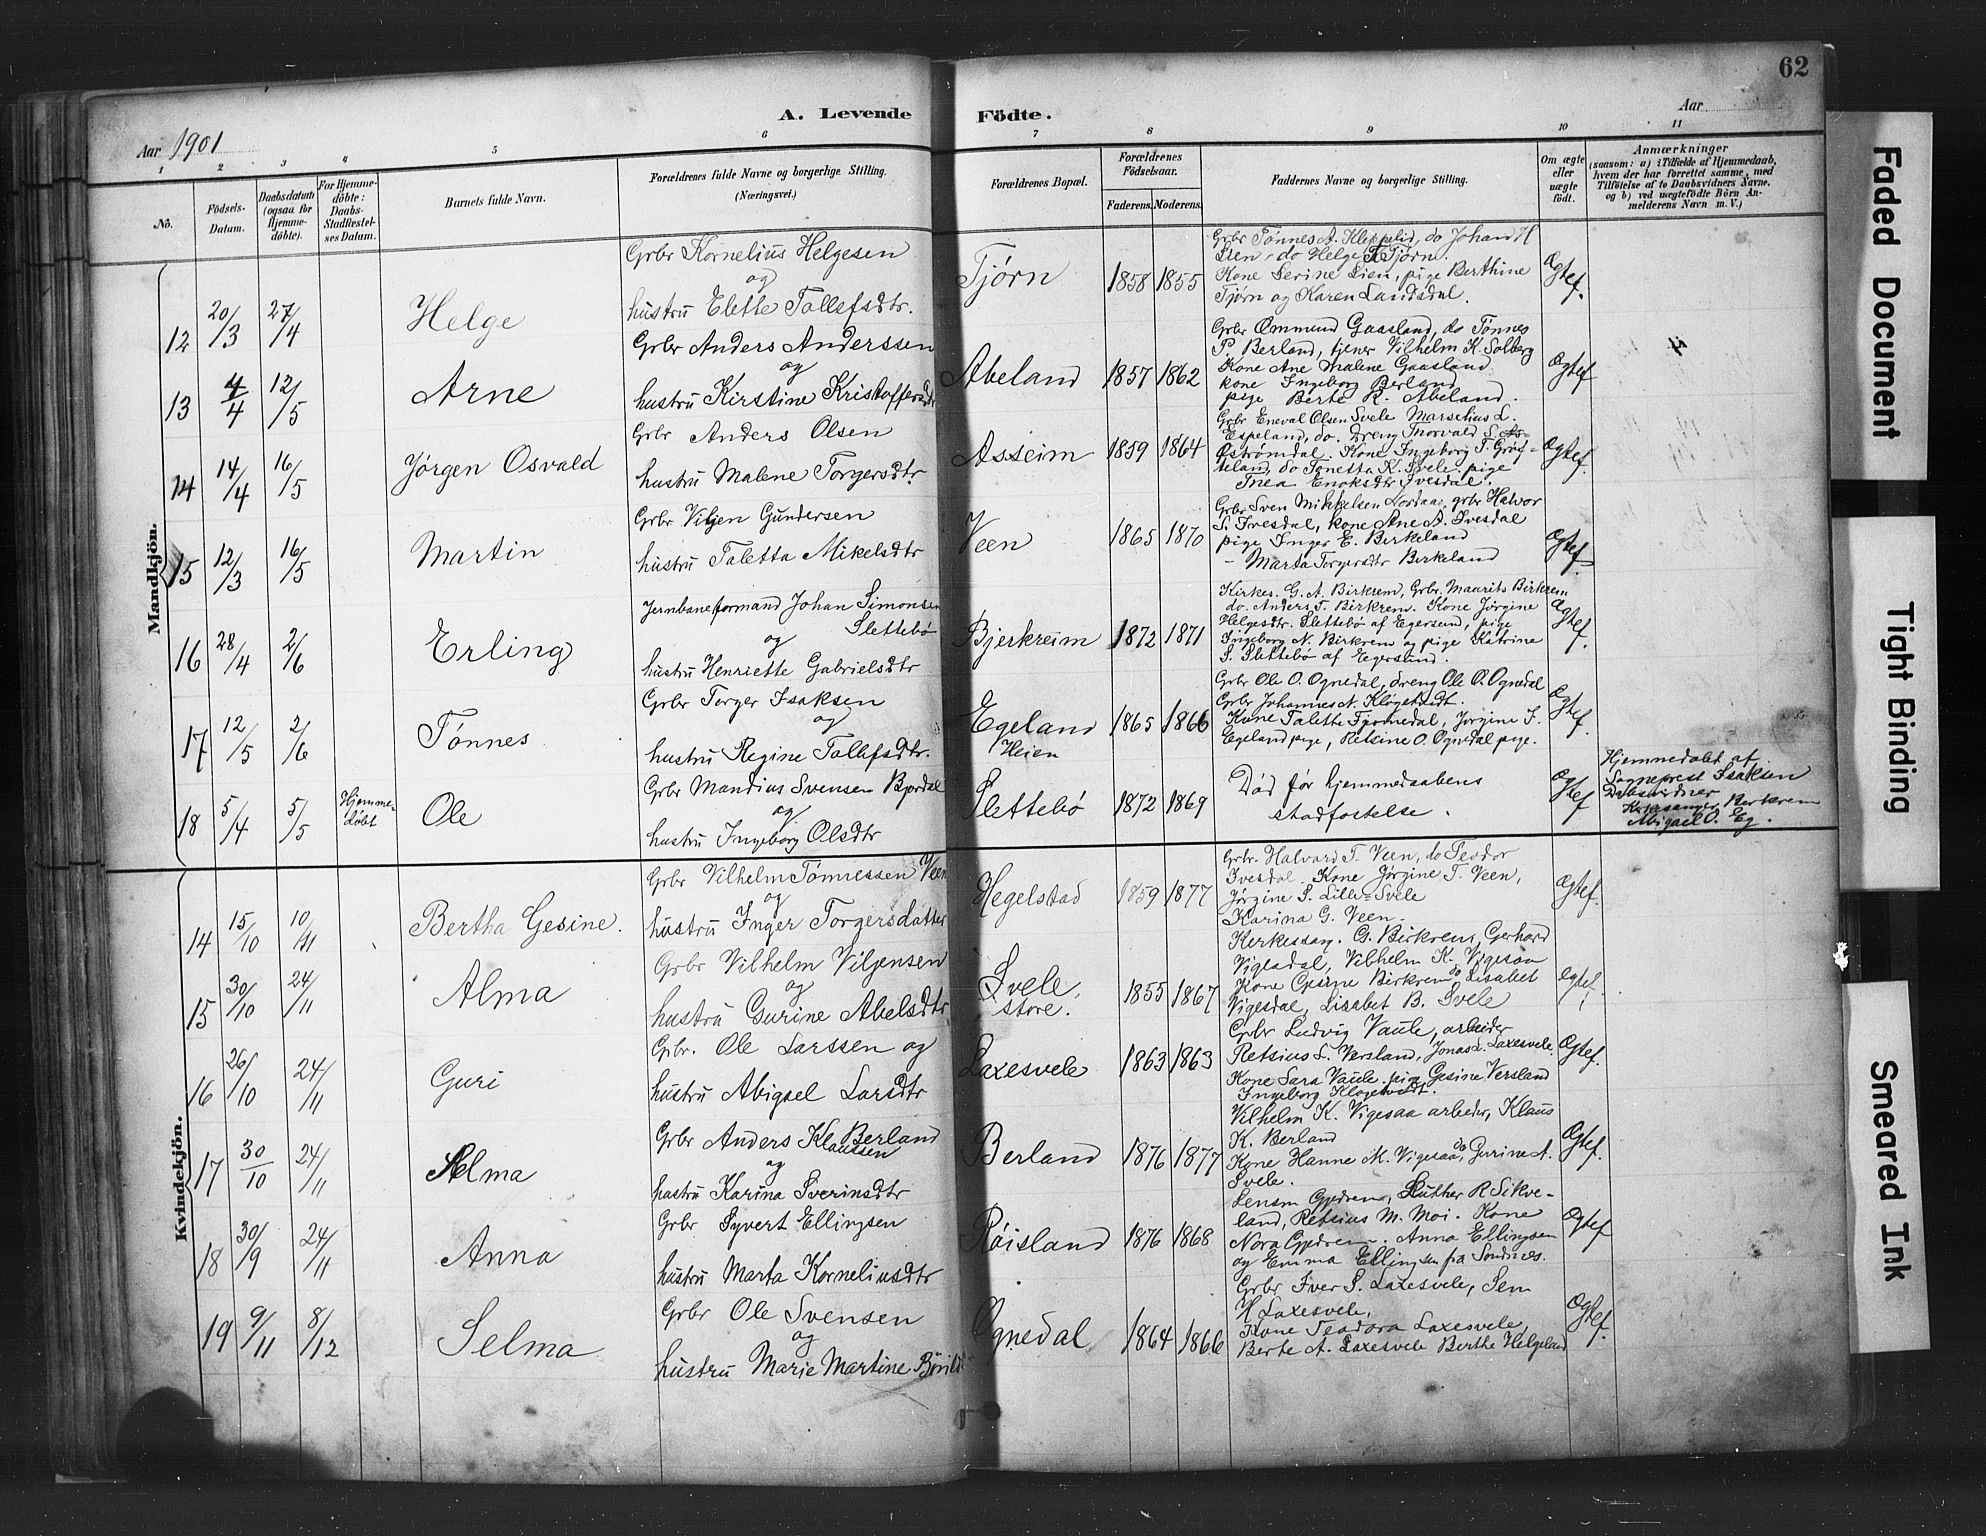 62
A. Levende Födte.
Aar 1901
Aar
1 2 3 4 5 6 7 8 9 10 11
No.
Födsels-Datum.
Daabsdatum (ogsaa for Hjemmedöbte).
For Hjemmedöbte: Daabs-Stadfæstelses Datum.
Barnets fulde Navn.
Forældrenes fulde Navne og borgerlige Stilling. (Næringsvei.)
Forældrenes Bopæl.
Forældrenes Födselsaar.
Faderens. Moderens.
Faddernes Navne og borgerlige Stilling.
Om ægte eller uægte födt.
Anmærkninger
(saasom: a) i Tilfælde af Hjemmedaab, hvem der har forrettet samme, med Tilföielse af to Daabsvidners Navne, og b) ved uægtefödte Börn Anmelderens Navn m. V.)
Mandkjön.
12 20/3 27/4 Helge
Grbr Kornelius Helgesen
og
hustru Elette Tollefsdtr.
Tjørn 1858 1855
Grbr Tønnes A. Kleppelid, do Johan H
Lien, do Helge K Tjørn.
Kone Serine Lien, pige Berthine
Tjørn og Karen Landsdal.
Ægtef.
13 4/4 12/5 Arne
Grbr Anders Anderssen
og
hustru Kirstine Kristoffersdtr
Abeland 1857 1862
Grbr Ommund Gaasland, do Tønnes
P. Berland, tjener Vilhelm K. Solberg
Kone Ane Malene Gaasland
kone Ingeborg Berland
pige Berte R. Abeland.
Ægtef
14 14/4 16/5 Jørgen Osvald
Grbr Anders Olsen
hustru Malene Torgersdtr.
Asseim 1859 1864
Grbr Eneval Olsen Svele Marselius L.
Espeland, do. Dreng Thorvald S.
Østrømdal. Kone Ingeborg T. Grøf-
teland, do Tonetta K. Svele, pige
Tnea Enoksdtr Ivesdal.
Ægtef.
15 12/3 16/5 Martin
Grbr Viljen Gundersen
hustru Taletta Mikelsdtr
Veen 1865 1870
Grbr Sven Mikkelsen Lordaas, grbr Halvor
S. Ivesdal, kone Ane A. Ivesdal
pige Inger E. Birkeland
- Marta Torgersdtr Birkeland
Ægtef.
16 28/4 2/6 Erling
Jernbaneformand Johan Simonsen
Slettebø
og
hustru Henriette Gabrielsdtr
Bjerkreim 1872 1871
Kirkes. G. A. Birkrem, Grbr. Maurits Birkrem
do. Anders T. Birkrem. Kone Jørgine
Helgesdtr. Slettebö af Egersund, pige
Ingeborg N. Birkrem og pige Katrine
S. Slettebö af Egersund.
Ægtef.
17 12/5 2/6 Tønnes
Grbr Torger Isaksen
og
hustru Regine Tollefsdtr.
Egeland
Heien
1865 1866
Grbr Ole O. Ognedal, dreng Ole O. Ognedal
Grbr Johannes N. Kløgetvedt.
Kone Talette Tjomedal, Jørgine I.
Egeland pige, Retsine O. Ognedal pige.
Ægtef.
18 5/4 5/5 Hjemme-døbt Ole
Grbr Mandius Svensen Bjordal
og
hustru Ingeborg Olsdtr
Slettebø 1872 1869
Død før hjemmedaabens
stadfæstelse.
Ægtef
Hjemmedøbt af
Sogneprest Isaksen
Daabsvidner
Kirkesanger Birkrem
Abigael O. Eg.
Kvindekjön.
14 15/10 10/11 Bertha Gesine.
Grbr Vilhelm Tønnessen Veen
og
hustru Inger Torgersdatter
Hegelstad 1859 1877
Grbr. Halvard T. Veen, do Teodor
Ivesdal. Kone Jørgine T. Veen,
Jørgine S. Lille-Svele
Karina G. Veen.
Ægtef.
15 30/10 24/11 Alma
Grbr Vilhelm Viljensen
og
hustru Gurine Abelsdtr
Svele,
store.
1855 1867
Kerkessag. G. Birkrem, Gerhard
Vigesdal, Vilhelm K. Vigesaa
Kone Gesine Birkrem do Lisabet
Vigesdal, Lisabet B. Svele
Ægtef.
16 26/10 24/11 Guri
Grbr. Ole Larssen og
hustru Abigael Larsdtr
Laxesvele 1863 1863
Grbr Ludvig Vaule, arbeider
Retsius L. Versland, Jonas L. Laxesvele.
Kone Sara Vaule, pige Gesine Versland
Ingeborg Kløgetvedt.
Ægtef.
17 30/10 24/11 Selma
Grbr Anders Klaussen Berland
og
hustru Karina Sverinsdtr
Berland 1876 1877
Vilhelm K. Vigesaa arbeder, Klaus
K. Berland
Kone Hanne M. Vigesaa, do Gurine A.
Svele.
Ægtef.
18 30/9 24/11 Anna
Grbr Syvert Ellingsen
hustru Marta Korneliusdtr
Røisland 1876 1868
Lensm Gjedrem, Luther R Sikve-
land, Retsius M. Moi. Kone
Nora Gjedrem. Anna Ellingsen
og Emma Ellingsen fra Sondnes.
Ægtef
19 9/11 8/12 Selma
Grbr Ole Svensen
og
hustru Marie Martine
Ognedal 1864 1866
Grbr Iver S. Laxesvele, Sem
H Laxesvele,
Kone Teadora Laxesvele,
Berte A. Laxesvele Berthe Helgeland
Ægtef.
Faded Document
Tight Binding
Smeared Ink